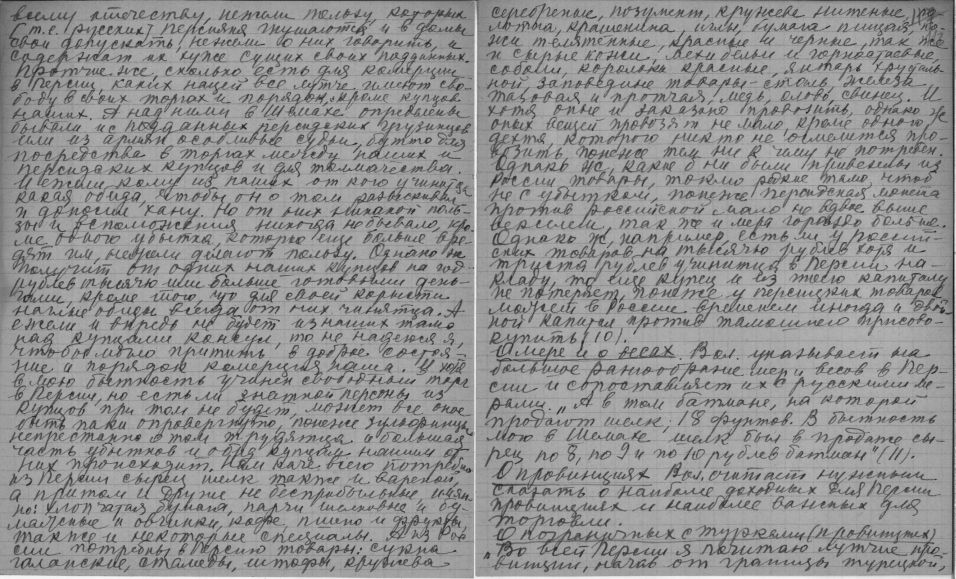 всему отечеству, нежели пользу, которых
(т.е. русских) персияня гнушаютца и в домы
свои допускать, нежели о них говорить, и
содержат их хуже сущих своих подданных.
Протчие же, сколько есть для комерции
в Персии, каких наций все лутче имеют сво-
боду в своих торгах и порядок, кроме купцов
наших. А над ними в Шемахе определены
бывали ис подданных персидских грузинцов
или из армян особливые судьи, будто для
посредства в торгах между наших и
персидских купцов и для толмачества.
И ежели кому из наших от кого учинитца
какая обида, чтобы он о том разыскивал
и доносил хану. Но от них никакой поль-
зы и вспоможения никогда не бывало, кро-
ме одного убытка, которые еще больше вре-
дят им, нежели делают пользу. Однако ж
получит от одних наших купцов на год
рублев тысячю или больше готовыми день-
гами, кроме того, что для своей корысти
наглые обиды всегда от них чинятца. А
ежели и впредь не будет из наших тамо
над купцами консул, то не надеюся я,
чтоб возможно притить в доброе состоя-
ние и порядок комерция наша. И хотя
в мою бытность учинен свободный торг
в Персии, но есть ли знатной персоны из
купцов при том не будет, может все оное
быть паки опровергнуто, понеже зюльфинцы
непрестанно о том трудятца и большая
часть убытков и обид купцам нашим от
них происходит. Нам паче всего потребно
из Персии сырец шелк также и вареной,
а притом и другие не бесприбыльные, имян-
но: хлопчатая бумага, парчи шелковые и бу-
мажные и овчинки, кофе, пшено и фрукты,
также и некоторые специалы. А из Рос-
сии потребны в Персию товары: сукна
галанские, стамеды, штофы, кружева
серебреные, позумент, кружеве нитеные, по-
лотна, крашенина, иглы, бумага пищая, ко-
жи телятенные, красные и черные, так же
и сырые кожи, мехи бельи и горностаевые
соболи, корольки красные, янтарь, хрусталь-
ной, заповедные товары: сталь, железа
тазовая и протчая, медь, олово, свинец. И
хотя оные и заказано провозить, однако ж
оных вещей провозят не мало, кроме одного
дехтя, которого никто не осмелится про-
возить, понеже там ни к чему не потребен.
Однако ж, какие ни были привезены из
России товары, токмо редкие тамо, чтоб
не с убытком, понеже персидская монета
против российской мало не вдвое выше
веселием, так же и мера гораздо больше.
Однако ж, например, есть ли россий-
ских товаров на тысячю рублев хотя и
триста рублев учинитца в Персии на-
кладу, то еще купец и из того капиталу
не потеряет, понеже у персицких товаров
может в России временем иногда и двой-
ной капитал против тамошнего присово-
купить (10).
О мере и о весах. Вол. указывает на
большое разнообразие мер и весов в Пер-
сии и сопоставляет их с русскими ме-
рами. „А в том батмане, на которой
продают шелк, 18 фунтов. В бытность
мою в Шемахе шелк был в продаже сы-
рец по 8, по 9 и по 10 рублев батман" (11).
О провинциях Вол. считает нужным
сказать о наиболее доходных для Персии
провинциях и наиболее важных для
торговли.
О пограничных с турками (провинциях)
„Во всей Персии я почитаю лутчие про-
винции, начав от границы турецкой,